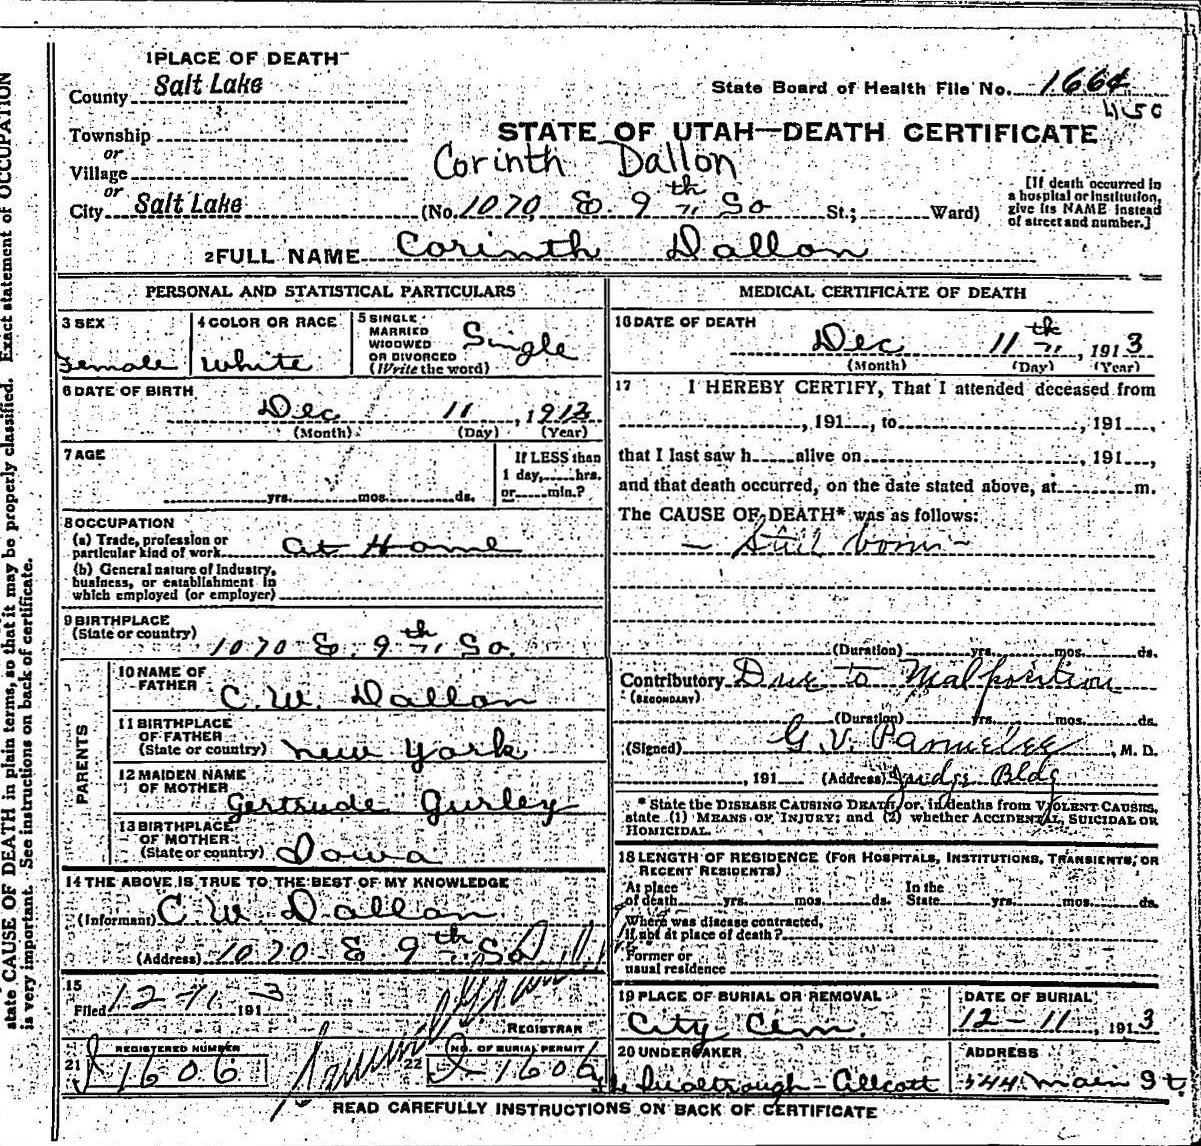 1 PLACE OF DEATH
County Salt Lake
State Board of Health File No. 1664
450
Township
or
Village
or
City Salt Lake
STATE OF UTAH—DEATH CERTIFICATE
Corinth Dallon
(No. 1070 E. 9th So St.; Ward)
[If death occurred in
a hospital or institution,
give its NAME instead
of street and number.]
2 FULL NAME Corinth Dallon
PERSONAL AND STATISTICAL PARTICULARS
3 SEX
Female
4 COLOR OR RACE
White
5 SINGLE
MARRIED
WIDOWED
OR DIVORCED
(Write the word)
Single
6 DATE OF BIRTH
Dec 11, 1913
(Month) (Day) (Year)
7 AGE
yrs. mos. ds.
If LESS than
1 day, hrs.
or min.?
8 OCCUPATION
(a) Trade, profession or
particular kind of work At Home
(b) General nature of Industry,
business, or establishment in
which employed (or employer)
9 BIRTHPLACE
(State or country) 1070 E. 9th So.
PARENTS
10 NAME OF
FATHER C. W. Dallon
11 BIRTHPLACE
OF FATHER
(State or country) New York
12 MAIDEN NAME
OF MOTHER Gertrude Gurley
13 BIRTHPLACE
OF MOTHER
(State or country) Iowa
14 THE ABOVE IS TRUE TO THE BEST OF MY KNOWLEDGE
(Informant) C. W. Dallon
(Address) 1070 E 9th So
15
Filed 12-11 191 3
REGISTRAR
21 REGISTERED NUMBER
1606
22 NO. OF BURIAL PERMIT
1606
MEDICAL CERTIFICATE OF DEATH
16 DATE OF DEATH
Dec 11th, 1913
(Month) (Day) (Year)
17 I HEREBY CERTIFY, That I attended deceased from
, 191 , to , 191 ,
that I last saw h alive on , 191 ,
and that death occurred, on the date stated above, at m.
The CAUSE OF DEATH* was as follows:
— Still born —
(Duration) yrs. mos. ds.
Contributory Due to Malposition
(SECONDARY)
(Duration) yrs. mos. ds.
(Signed) G. V. Parmelee, M. D.
, 191 (Address) Judge Bldg
* State the DISEASE CAUSING DEATH, or, in deaths from VIOLENT CAUSES,
state (1) MEANS OF INJURY; and (2) whether ACCIDENTAL, SUICIDAL OR
HOMICIDAL.
18 LENGTH OF RESIDENCE (FOR HOSPITALS, INSTITUTIONS, TRANSIENTS, OR
RECENT RESIDENTS)
At place
of death yrs. mos. ds.
In the
State yrs. mos. ds.
Where was disease contracted,
If not at place of death?
Former or
usual residence
19 PLACE OF BURIAL OR REMOVAL
City Cem.
DATE OF BURIAL
12-11, 1913
20 UNDERTAKER
ADDRESS
544 Main St
READ CAREFULLY INSTRUCTIONS ON BACK OF CERTIFICATE
state CAUSE OF DEATH in plain terms, so that it may be properly classified. Exact statement of OCCUPATION
is very important. See instructions on back of certificate.